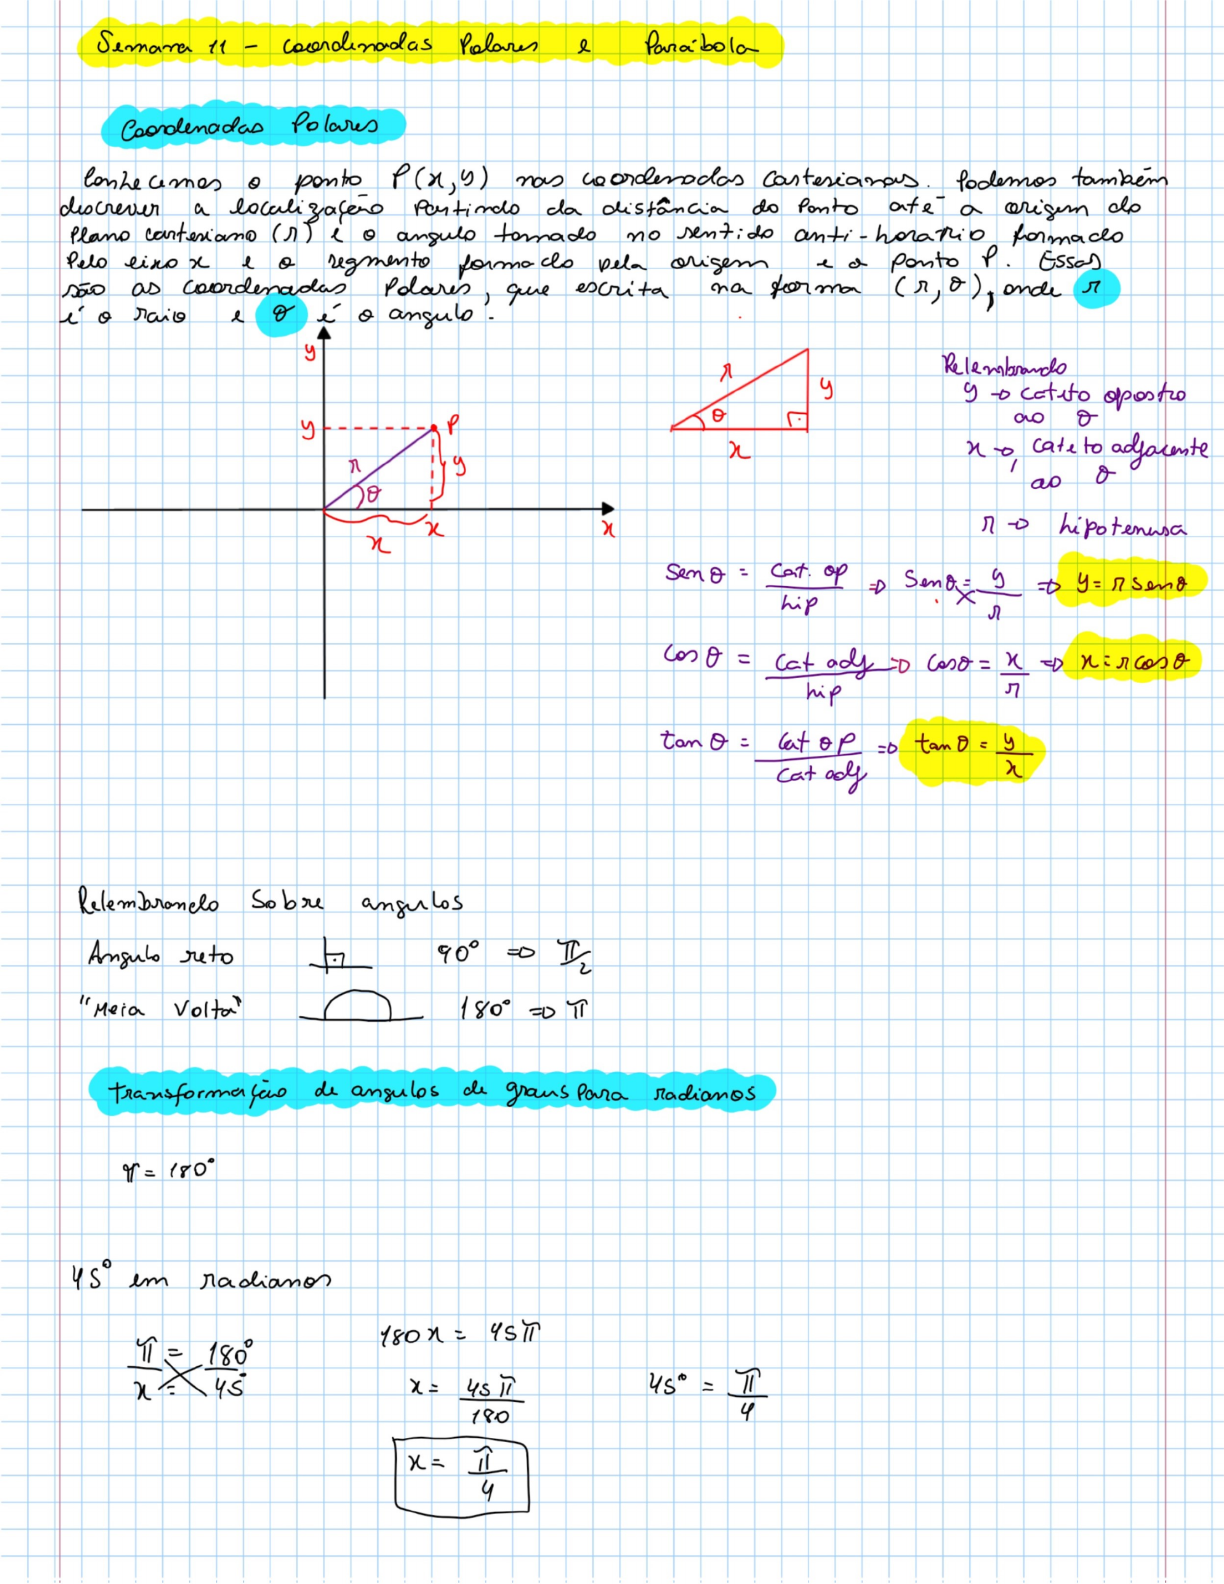 Semana 11 - coordenadas Polares e Parábola
Coordenadas Polares
Conhecemos o ponto P(x,y) nas coordenadas cartesianas. Podemos também
descrever a localização Partindo da distância do Ponto até a origem do
Plano cartesiano (r) e o angulo tomado no sentido anti-horário formado
Pelo eixo x e o segmento formado pela origem e o ponto P. Essas
são as coordenadas Polares, que escrita na forma (r, θ), onde r
é o raio e θ é o angulo.
y
y P
r y
θ
x x x
r y
θ
x
Relembrando
y → cateto oposto
ao θ
x → cateto adjacente
ao θ
r → hipotenusa
Sen θ = Cat. op / hip ⇒ Sen θ = y / r ⇒ y = r sen θ
Cos θ = Cat adj / hip ⇒ Cos θ = x / r ⇒ x = r cos θ
tan θ = Cat op / Cat adj ⇒ tan θ = y / x
Relembrando Sobre angulos
Angulo reto 90° ⇒ π/2
"Meia Volta" 180° ⇒ π
transformação de angulos de graus Para radianos
π = 180°
45° em radianos
π = 180°
x = 45°
180x = 45π
x = 45π / 180
x = π / 4
45° = π / 4